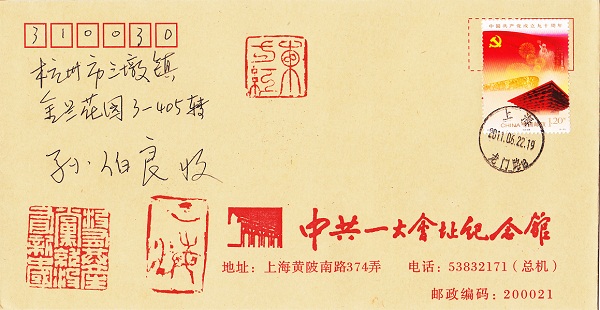 310030
中国共产党成立九十周年
杭州市三墩镇
金兰花园3-405转
孙伯良收
东方红
CHINA 中国邮政 1.20
上海
2011.06.22.19
龙门路
上海
中共一大会址纪念馆
地址:上海黄陂南路374弄 电话:53832171(总机)
邮政编码:200021